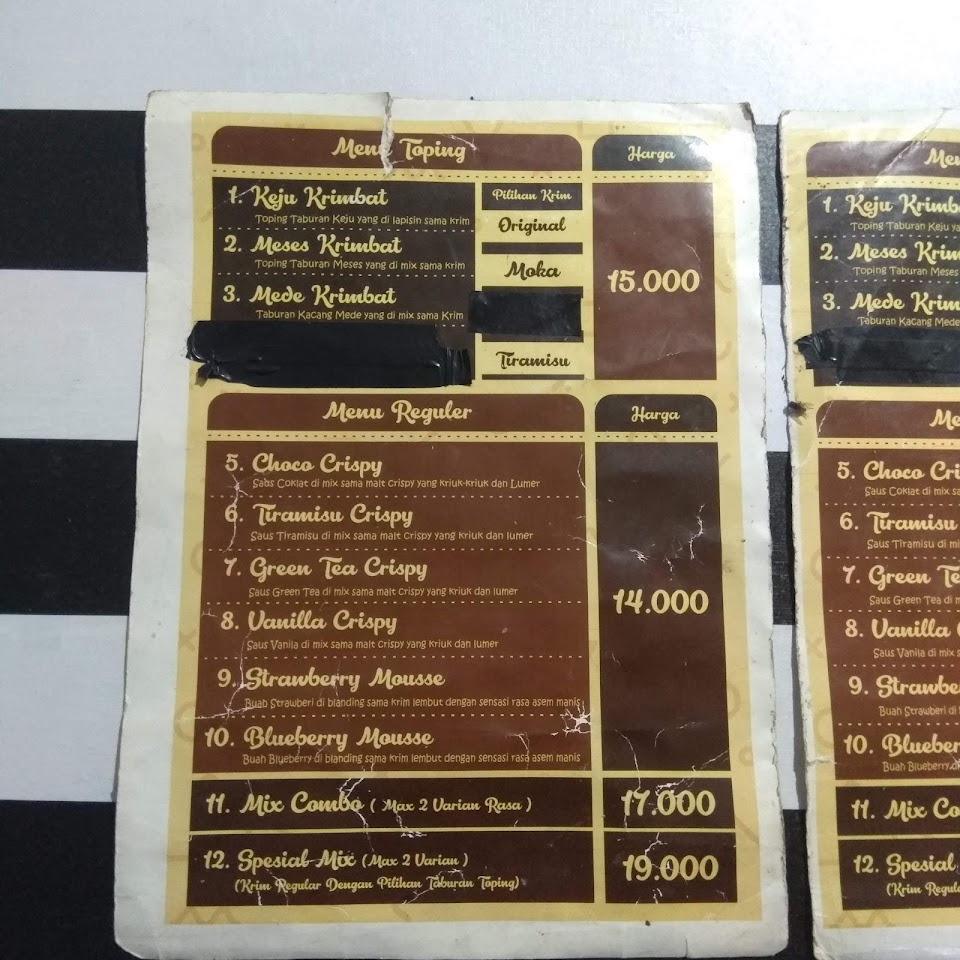 Menu Toping
Harga
1. Keju Krimbat
Toping Taburan Keju yang di lapisin sama krim
2. Meses Krimbat
Toping Taburan Meses yang di mix sama krim
3. Mede Krimbat
Taburan Kacang Mede yang di mix sama Krim
Pilihan Krim
Original
Moka
Tiramisu
15.000
Menu Reguler
Harga
5. Choco Crispy
Saus Coklat di mix sama malt crispy yang kriuk-kriuk dan Lumer
6. Tiramisu Crispy
Saus Tiramisu di mix sama malt crispy yang kriuk dan lumer
7. Green Tea Crispy
Saus Green Tea di mix sama malt crispy yang kriuk dan lumer
8. Vanilla Crispy
Saus Vanila di mix sama malt crispy yang kriuk dan lumer
9. Strawberry Mousse
Buah Strawberi di blanding sama krim lembut dengan sensasi rasa asem manis
10. Blueberry Mousse
Buah Blueberry di blanding sama krim lembut dengan sensasi rasa asem manis
14.000
11. Mix Combo ( Max 2 Varian Rasa )
17.000
12. Spesial Mix (Max 2 Varian )
(Krim Regular Dengan Pilihan Taburan Toping)
19.000
1. Keju
Toping Taburan Keju
2. Meses
Toping Taburan Meses
3. Mede
Taburan Kacang Mede
5. Choco
Saus Coklat di mix
6. Tiramisu
Saus Tiramisu di
7. Green
Saus Green Tea di
8. Vanilla
Saus Vanila di mix
9.
Buah Strawberi di
10.
Buah Blueberry
11. Mix
12. Spesial
(Krim